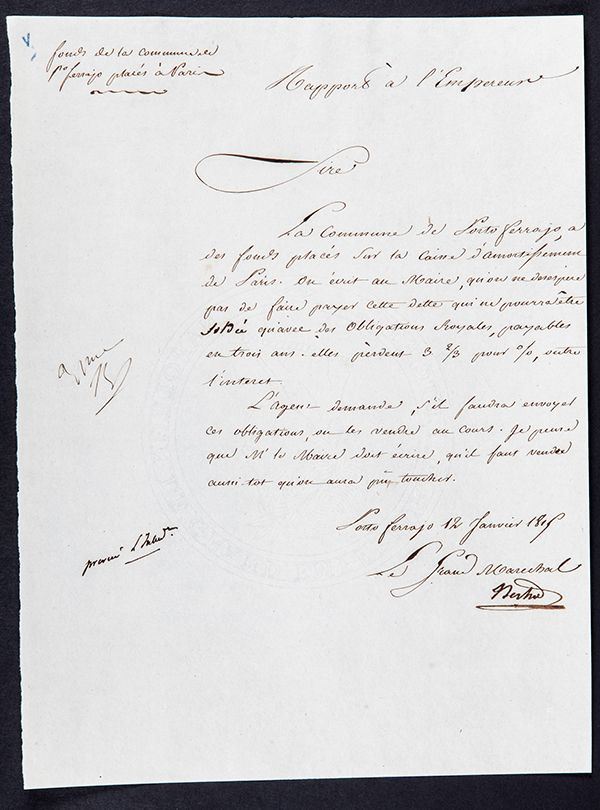 fonds de la commune de
Pto ferrajo placés à Paris
Rapport à l'Empereur
Sire
La Commune de Porto ferrajo, a
des fonds placés sur la Caisse d'amortissement
de Paris. On écrit au Maire, qu'on ne desespere
pas de faire payer cette dette qui ne pourra être
soldée qu'avec des Obligations Royales, payables
en trois ans. elles perdent 3 2/3 pour %, outre
l'interet.
L'Agent demande, s'il faudra envoyer
ces obligations, ou les vendre au cours. Je pense
que Mr le Maire doit écrire, qu'il faut vendre
aussi-tot qu'on aura pu toucher.
Porto ferrajo 12 Janvier 1815
Le Grand Marechal
Bertrand